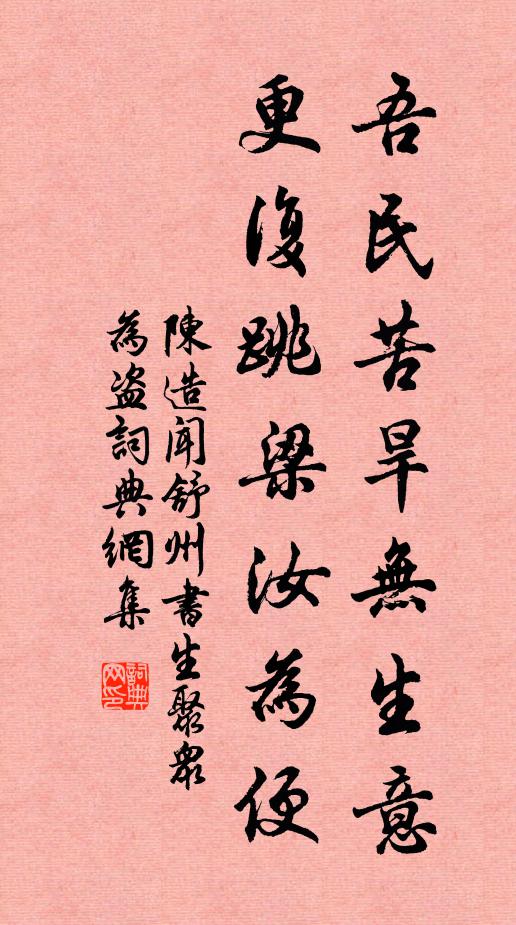 吾民苦旱無生意
更復跳梁汝為便
陳造聞舒州書生聚眾
為盜詞典網集
詞典网印